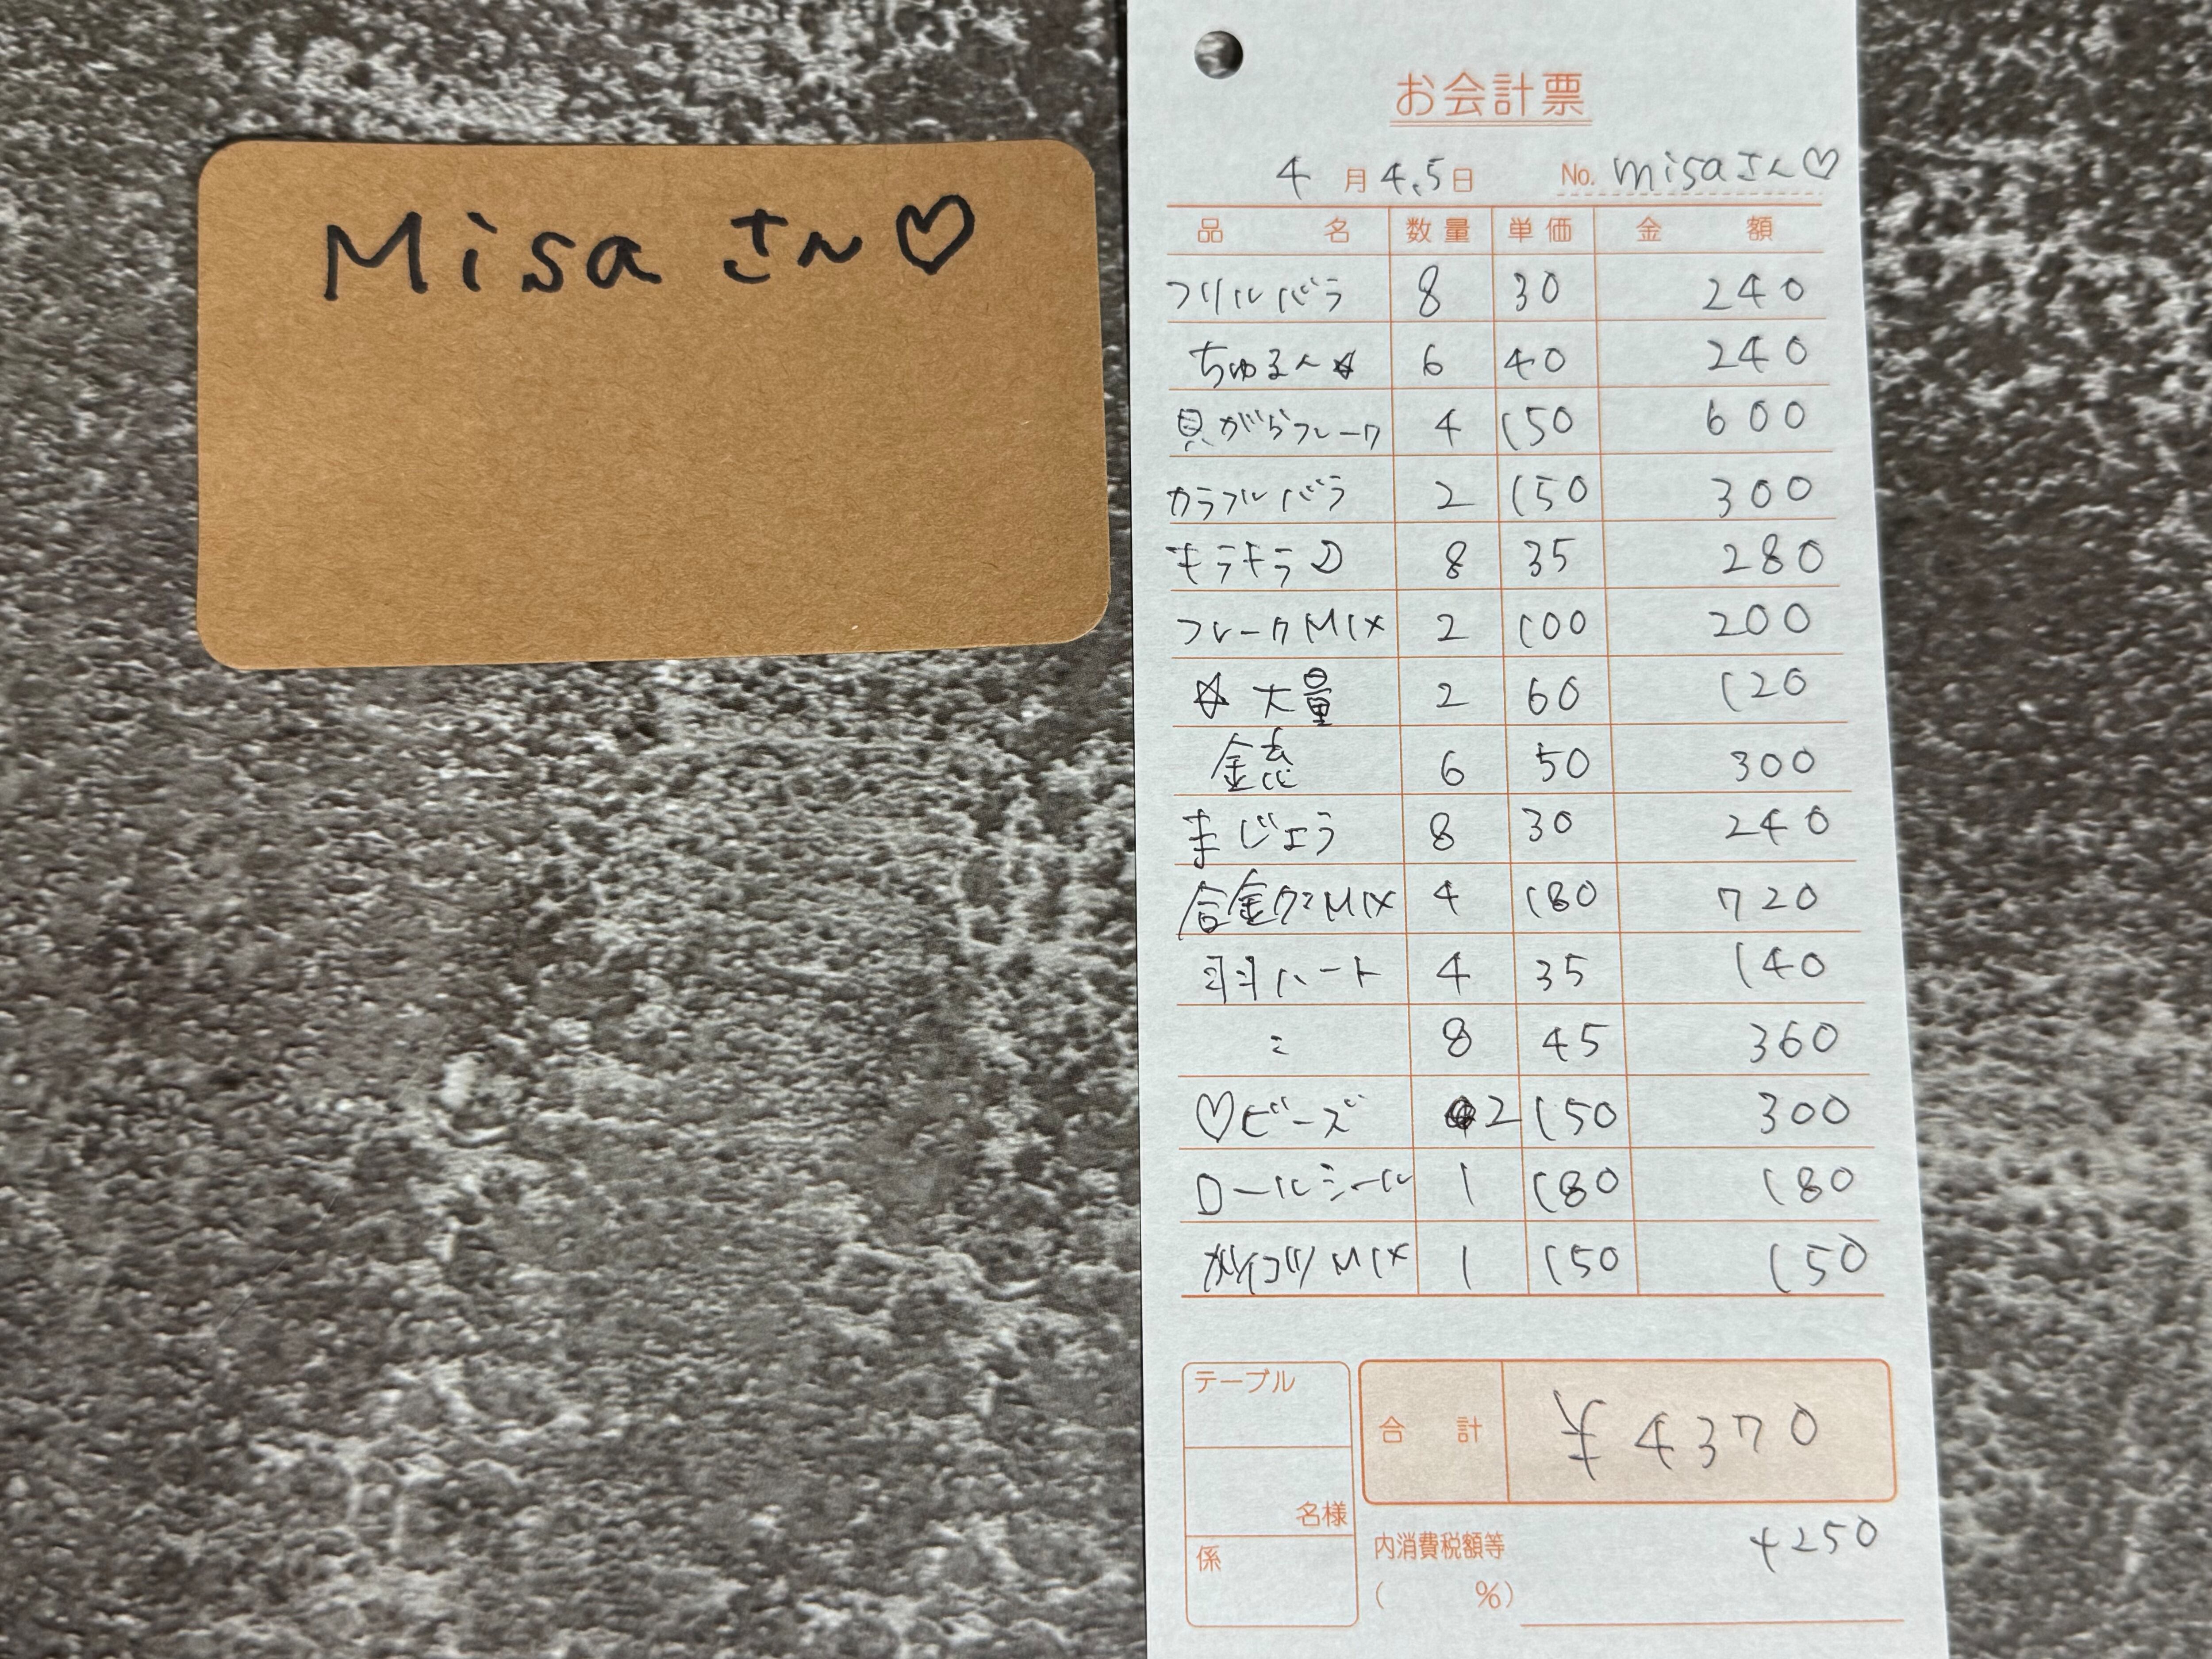 Misa さん♡
お会計票
4 月 4.5 日 No. misaさん♡
品名 数量 単価 金額
フリルバラ 8 30 240
ちゅるん☆ 6 40 240
貝がらフレーク 4 150 600
カラフルバラ 2 150 300
キラキラ☽ 8 35 280
フレークMIX 2 100 200
☆大量 2 60 120
金 6 50 300
まじょう 8 30 240
合金クマMIX 4 180 720
羽ハート 4 35 140
〃 8 45 360
♡ビーズ 2 150 300
ロールシール 1 180 180
MIX 1 150 150
テーブル
合計 ¥4370
名様
係
内消費税額等 +250
( %)